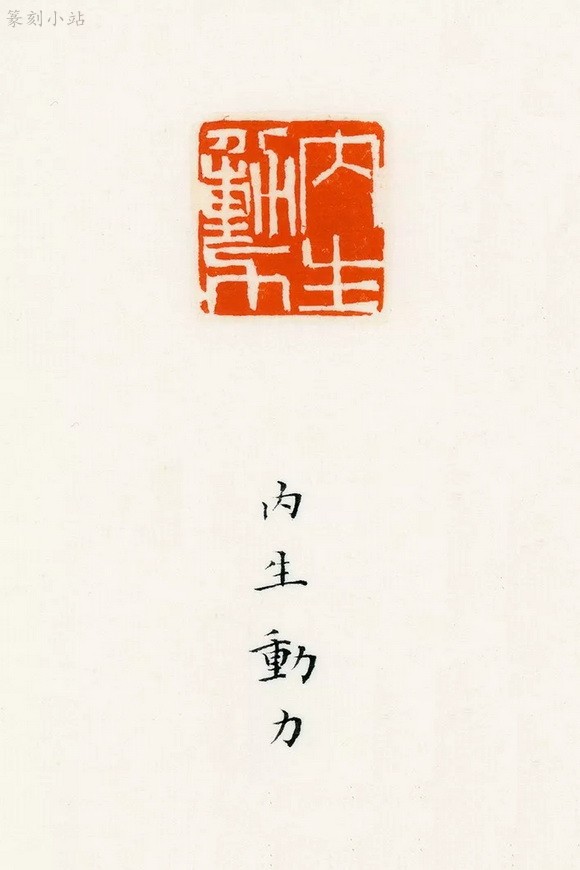 篆刻小站
内生
動力
内
生
動
力